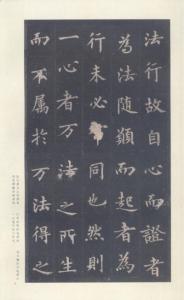 法行故自心而證者
為法随願而起者為
行未必同也然則
一心者万法之所生
而不属於万法得之